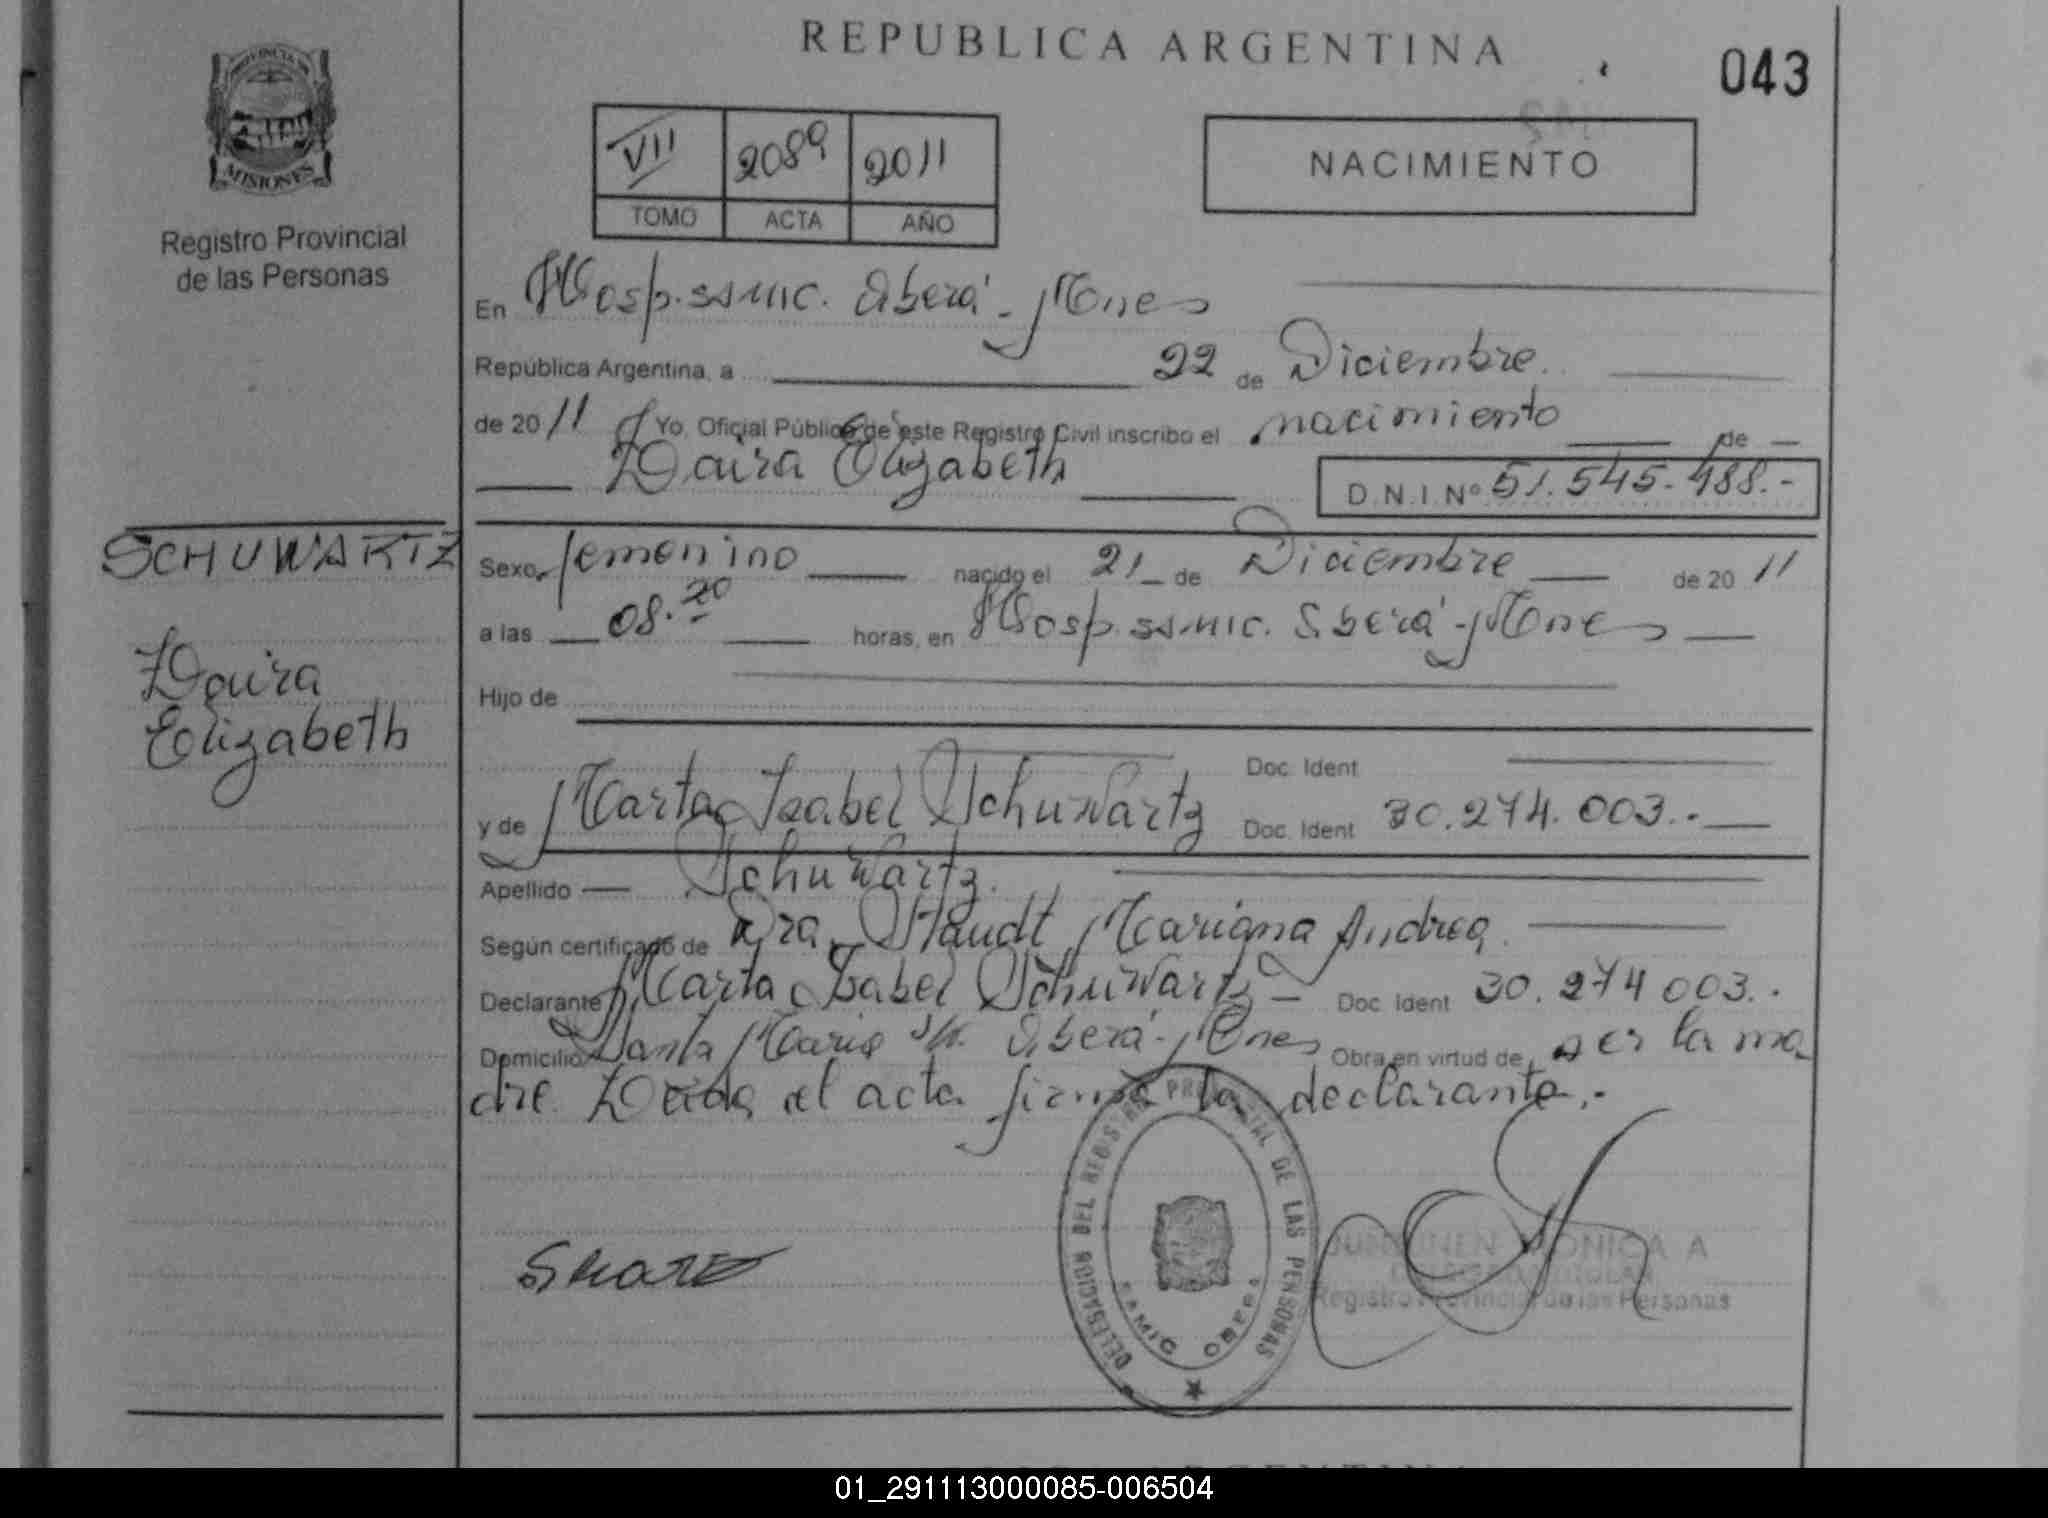 REPUBLICA ARGENTINA
043
PROVINCIA DE
MISIONES
Registro Provincial
de las Personas
VII 2089 2011
TOMO ACTA AÑO
NACIMIENTO
En Hosp. SAMIC. Oberá - Mnes
República Argentina, a 22 de Diciembre.
de 2011 Yo, Oficial Público de este Registro Civil inscribo el nacimiento de
Daira Elizabeth
D.N.I. Nº 51.545.488.-
SCHUWARTZ
Daira
Elizabeth
Sexo femenino nacido el 21 de Diciembre de 2011
a las 08.20 horas, en Hosp. SAMIC. Oberá - Mnes
Hijo de
Doc. Ident
y de Marta Isabel Schuwartz Doc. Ident 30.274.003.-
Apellido Schuwartz.
Según certificado de Dra. Staudt Mariana Andrea.
Declarante Marta Isabel Schuwartz - Doc. Ident 30.274 003.
Domicilio Santa María s/n. Oberá - Mnes Obra en virtud de ser la ma
dre. Leida el acta firma la declarante.-
DELEGACION DEL REGISTRO PROVINCIAL DE LAS PERSONAS
SAMIC OBERA
MONICA A
Registro Provincial de las Personas
01_291113000085-006504